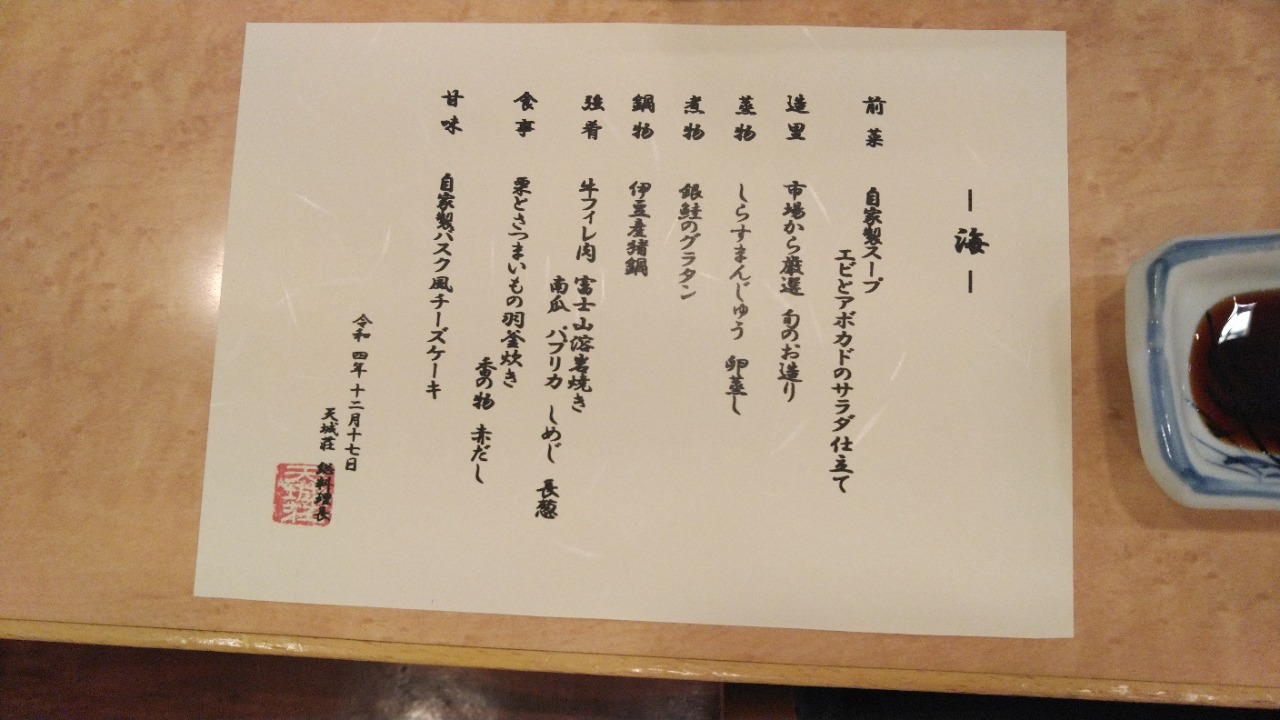 ー海ー
前菜 自家製スープ
エビとアボカドのサラダ仕立て
造里 市場から厳選 旬のお造り
蒸物 しらすまんじゅう 卵蒸し
煮物 銀鮭のグラタン
鍋物 伊豆産猪鍋
強肴 牛フィレ肉 富士山溶岩焼き
南瓜 パプリカ しめじ 長葱
食事 栗とさつまいもの羽釜炊き
香の物 赤だし
甘味 自家製バスク風チーズケーキ
令和 四年 十二月十七日
天城荘 総料理長
天城荘